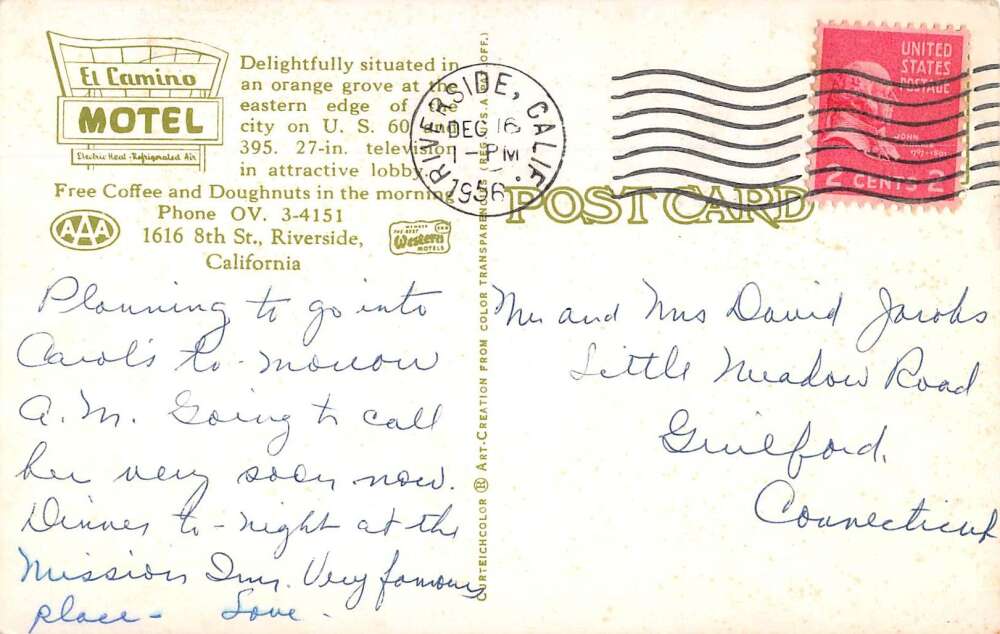 El Camino
MOTEL
Electric Heat - Refrigerated Air
Delightfully situated in
an orange grove at the
eastern edge of the
city on U. S. 60 and
395. 27-in. television
in attractive lobby.
Free Coffee and Doughnuts in the morning
Phone OV. 3-4151
1616 8th St., Riverside,
California
AAA
MEMBER
THE BEST
Western
MOTELS
Planning to go into
Carol's to-morrow
A.M. Going to call
her very soon now.
Dinner to-night at the
Mission Inn. Very famous
place - Love.
CURTEICHCOLOR ® ART-CREATION FROM COLOR TRANSPARENCY (REG. U.S.A. OFF.)
RIVERSIDE, CALIF.
DEC 16
1-PM
1956
POST CARD
UNITED
STATES
POSTAGE
JOHN
2 CENTS 2
Mr and Mrs David Jacobs
Little Meadow Road
Guilford,
Connecticut